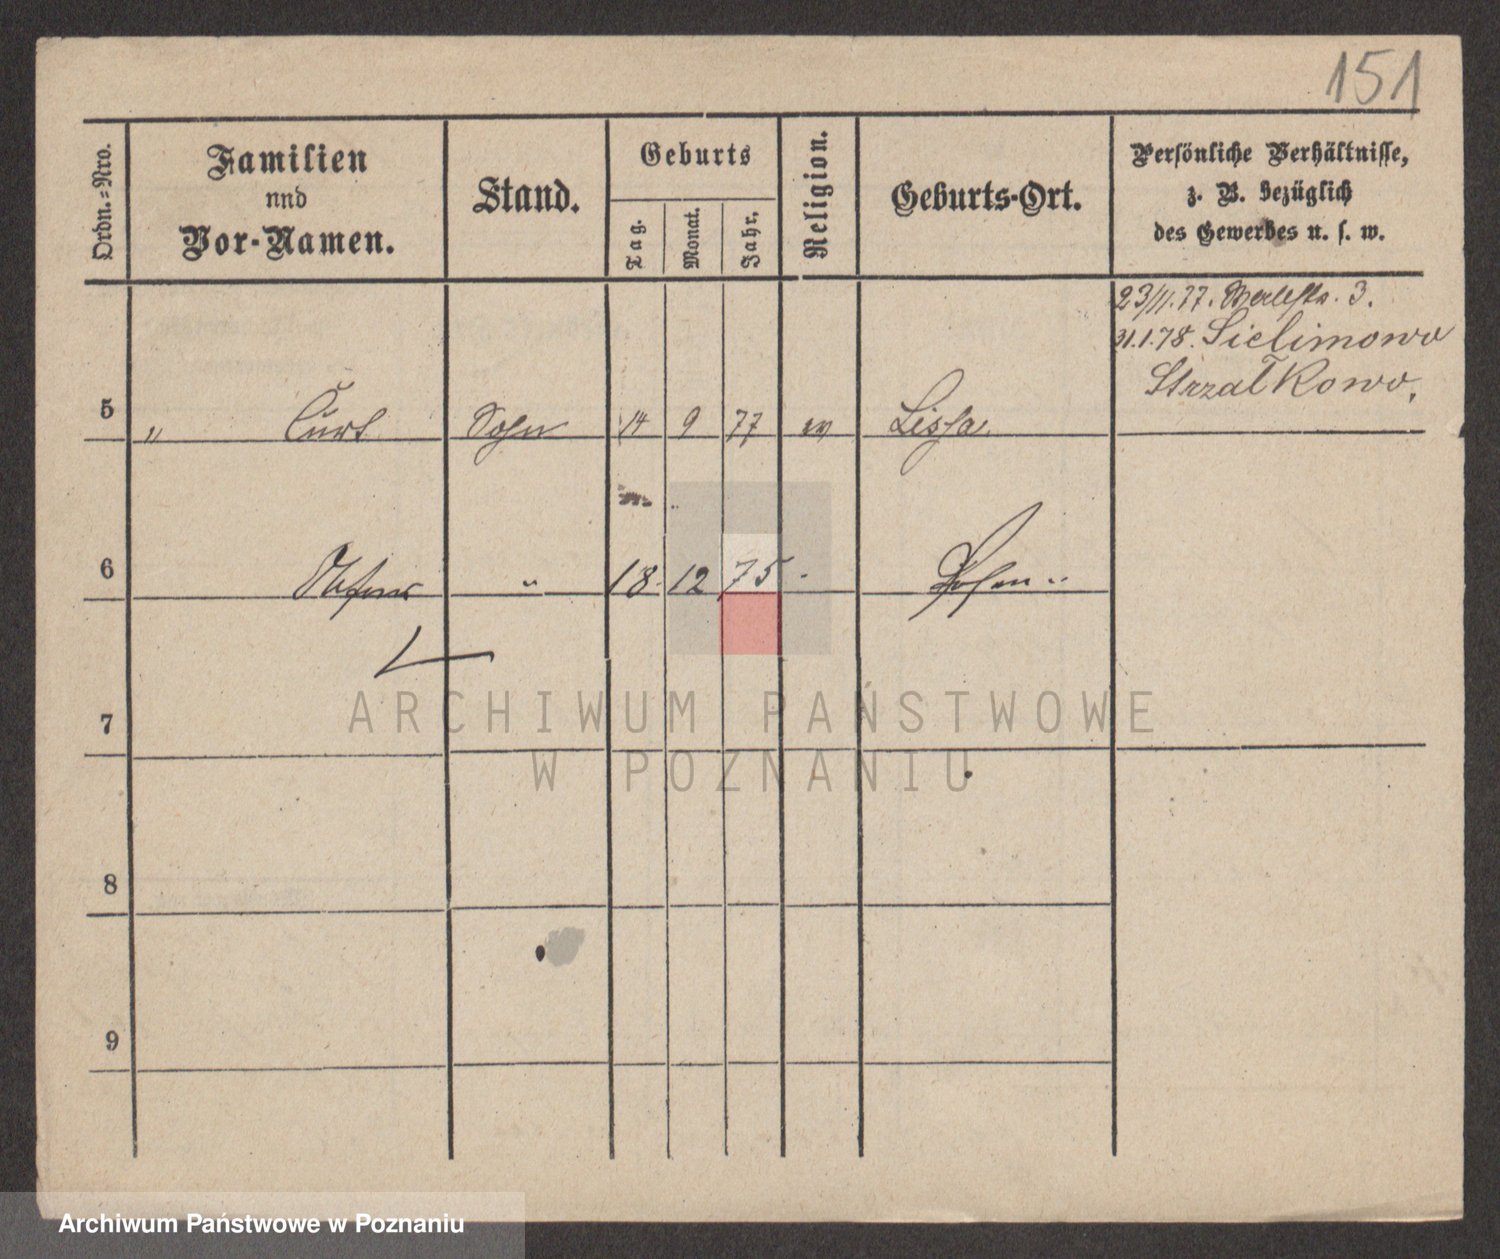 151
Ordn.-Nro.
Familien
und
Vor-Namen.
Stand.
Geburts
Tag.
Monat.
Jahr.
Religion.
Geburts-Ort.
Persönliche Verhältnisse,
z. B. bezüglich
des Gewerbes u. s. w.
23/11.77. 3.
31.1.78. Sielimowo
Strzałkowo,
5 " Curt Sohn 14 9 77 ev Lissa
6 " 18 12 75 Posen
7
8
9
ARCHIWUM PAŃSTWOWE
W POZNANIU
Archiwum Państwowe w Poznaniu